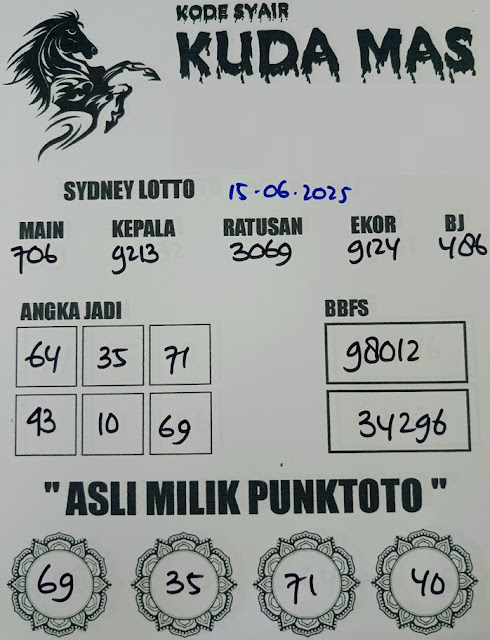 KODE SYAIR
KUDA MAS
SYDNEY LOTTO 15-06-2025
MAIN KEPALA RATUSAN EKOR BJ
706 9213 3069 9124 486
ANGKA JADI BBFS
64 35 71 98012
93 10 69 34296
" ASLI MILIK PUNKTOTO "
69 35 71 40